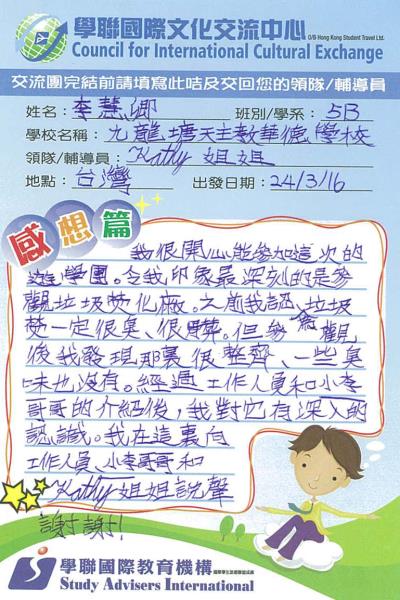 學聯國際文化交流中心
O/B Hong Kong Student Travel Ltd.
Council for International Cultural Exchange
交流團完結前請填寫此咭及交回您的領隊/輔導員
姓名：李慧卿 班別/學系：5B
學校名稱：九龍塘天主教華德學校
領隊/輔導員：Kathy 姐姐
地點：台灣 出發日期：24/3/16
感想篇
我很開心能參加這次的
遊學團。令我印象最深刻的是參
觀垃圾焚化廠。之前我認為垃圾
焚一定很臭、很髒。但參觀
後我發現那裏很整齊、一些臭
味也沒有。經過工作人員和小李
哥哥的介紹後，我對它有深入的
認識。我在這裏向
工作人員、小李哥哥和
Kathy 姐姐說聲
謝謝!
學聯國際教育機構
Study Advisers International